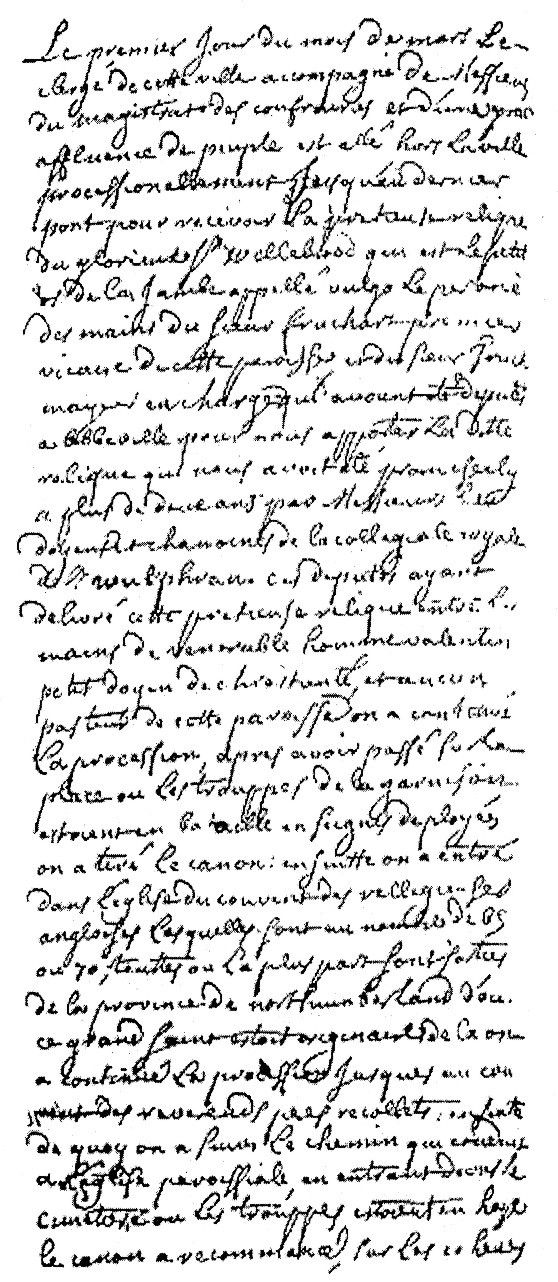 Le premier Jour du mois de mars Le
clergé de cette ville acompagné de Messieurs
du magistrat des confrairies et d'une
affluence de peuple est allé hors la ville
processionellement Jusqu'au dernier
pont pour recevoir La pretieuse relique
du glorieux St Willebrod qui est le petit
os de la Jambe appellé vulgo Le
des mains du sieur fruchart premier
vicaire de cette paroisse et du sieur
mayeur en charge qui avoient été deputés
a abbeville pour nous apporter La ditte
relique qui nous avoit été promise il y
a plus de deux ans par Messieurs Les
doyen et chanoines de la collegiale royale
de St wulphran ces deputés ayant
delivré cette pretieuse relique entre les
mains de venerable homme valentin
petit doyen de chrestienté, et ancien
pasteur de cette paroisse on a continué
La procession, apres avoir passé sur La
place ou Les trouppes de la garnison
estoient en bataille enseignes deployés
on a tiré Le canon: ensuitte on a entré
dans L'eglise du couvent des religieuses
angloises Lesquelles sont au nombre de 65
ou 70, toutes ou La plus part sont sorties
de la province de northumberland d'ou
ce grand saint estoit originaire de la on
a continué La procession Jusques au cou
vent des reverends peres recollets, ensuite
de quoy on a suivi Le chemin qui conduit
a L'eglise paroissiale en entrant dans le
cimetiere ou Les trouppes estoient en haye
le canon a recommencé, sur Les